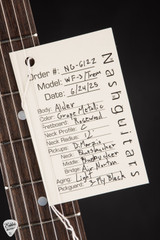 Nashguitars
Order #: NG-6122
Model: WF-3/Trem
Date: 6/24/25
Body: Alder
Color: Grape Metallic
Fretboard: Rosewood
Neck Profile: C
Neck Radius: 12"
Pickups:
Neck:
Middle:
Bridge:
Aging: Light
Pickguard: 3-Ply Black